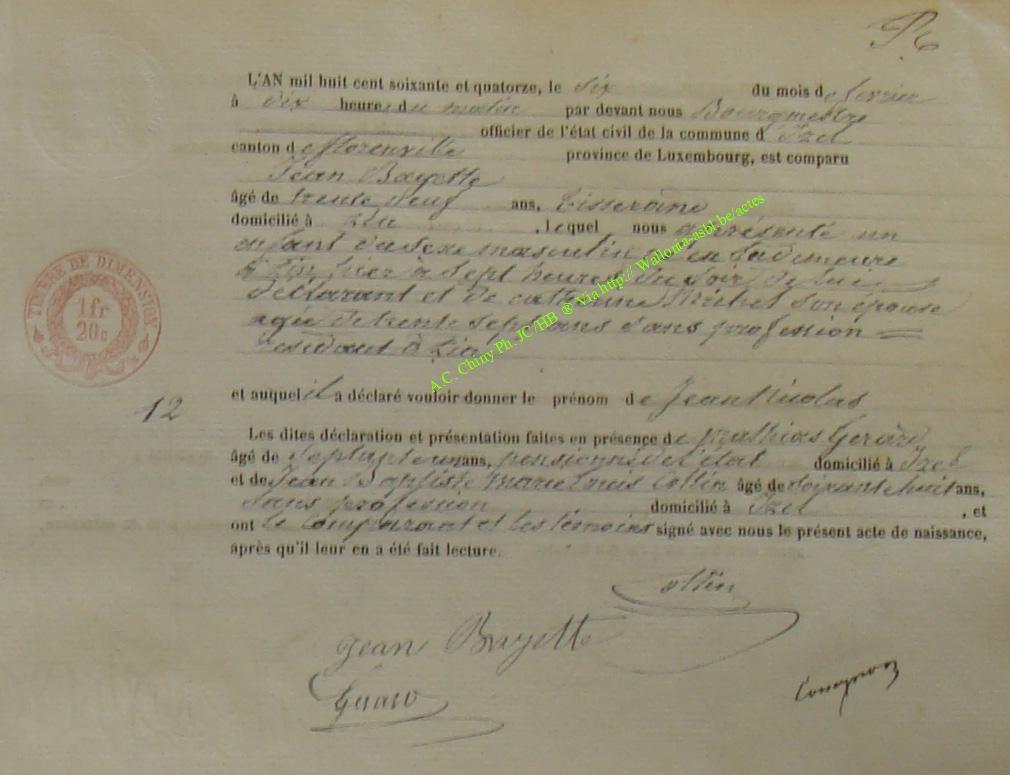 L'AN mil huit cent soixante et quatorze, le six du mois de fevrier
à dix heures du matin par devant nous Bourgmestre
officier de l'état civil de la commune d'Izel
canton de florenville province de Luxembourg, est comparu
Jean Bayette
âgé de trente neuf ans, tisserand
domicilié à , lequel nous a présenté un
enfant du sexe masculin né en sa demeure
hier à sept heures du soir, de lui
déclarant et de catherine son épouse
agée de trente sept ans sans profession
résidant à
et auquel il a déclaré vouloir donner le prénom de Jean Nicolas
12
Les dites déclaration et présentation faites en présence de Mathias Gerard,
âgé de septante un ans, pensionné de l'état domicilié à Izel
et de Jean Baptiste Marie Louis Collin âgé de soixante huit ans,
sans profession domicilié à Izel , et
ont le comparant et les témoins signé avec nous le présent acte de naissance,
après qu'il leur en a été fait lecture.
Collin
Jean Bayette
Gerard
TIMBRE DE DIMENSION
1 fr
20 c
A.C. Chiny Ph. JC/HB ® Via http:// Wallonia-asbl.be/actes